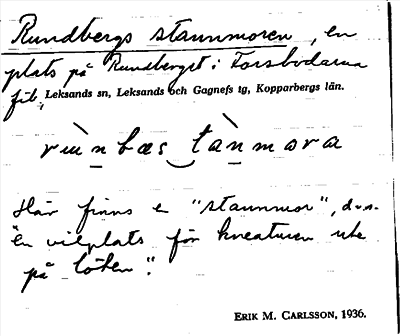 Rundbergs stammoren, en
plats på Rundberget i Forsbodarna
fäb. Leksands sn, Leksands och Gagnefs tg, Kopparbergs län.
Här finns en "stammor", d.v.s.
en vilplats för kreaturen ute
på löten".
ERIK M. CARLSSON, 1936.